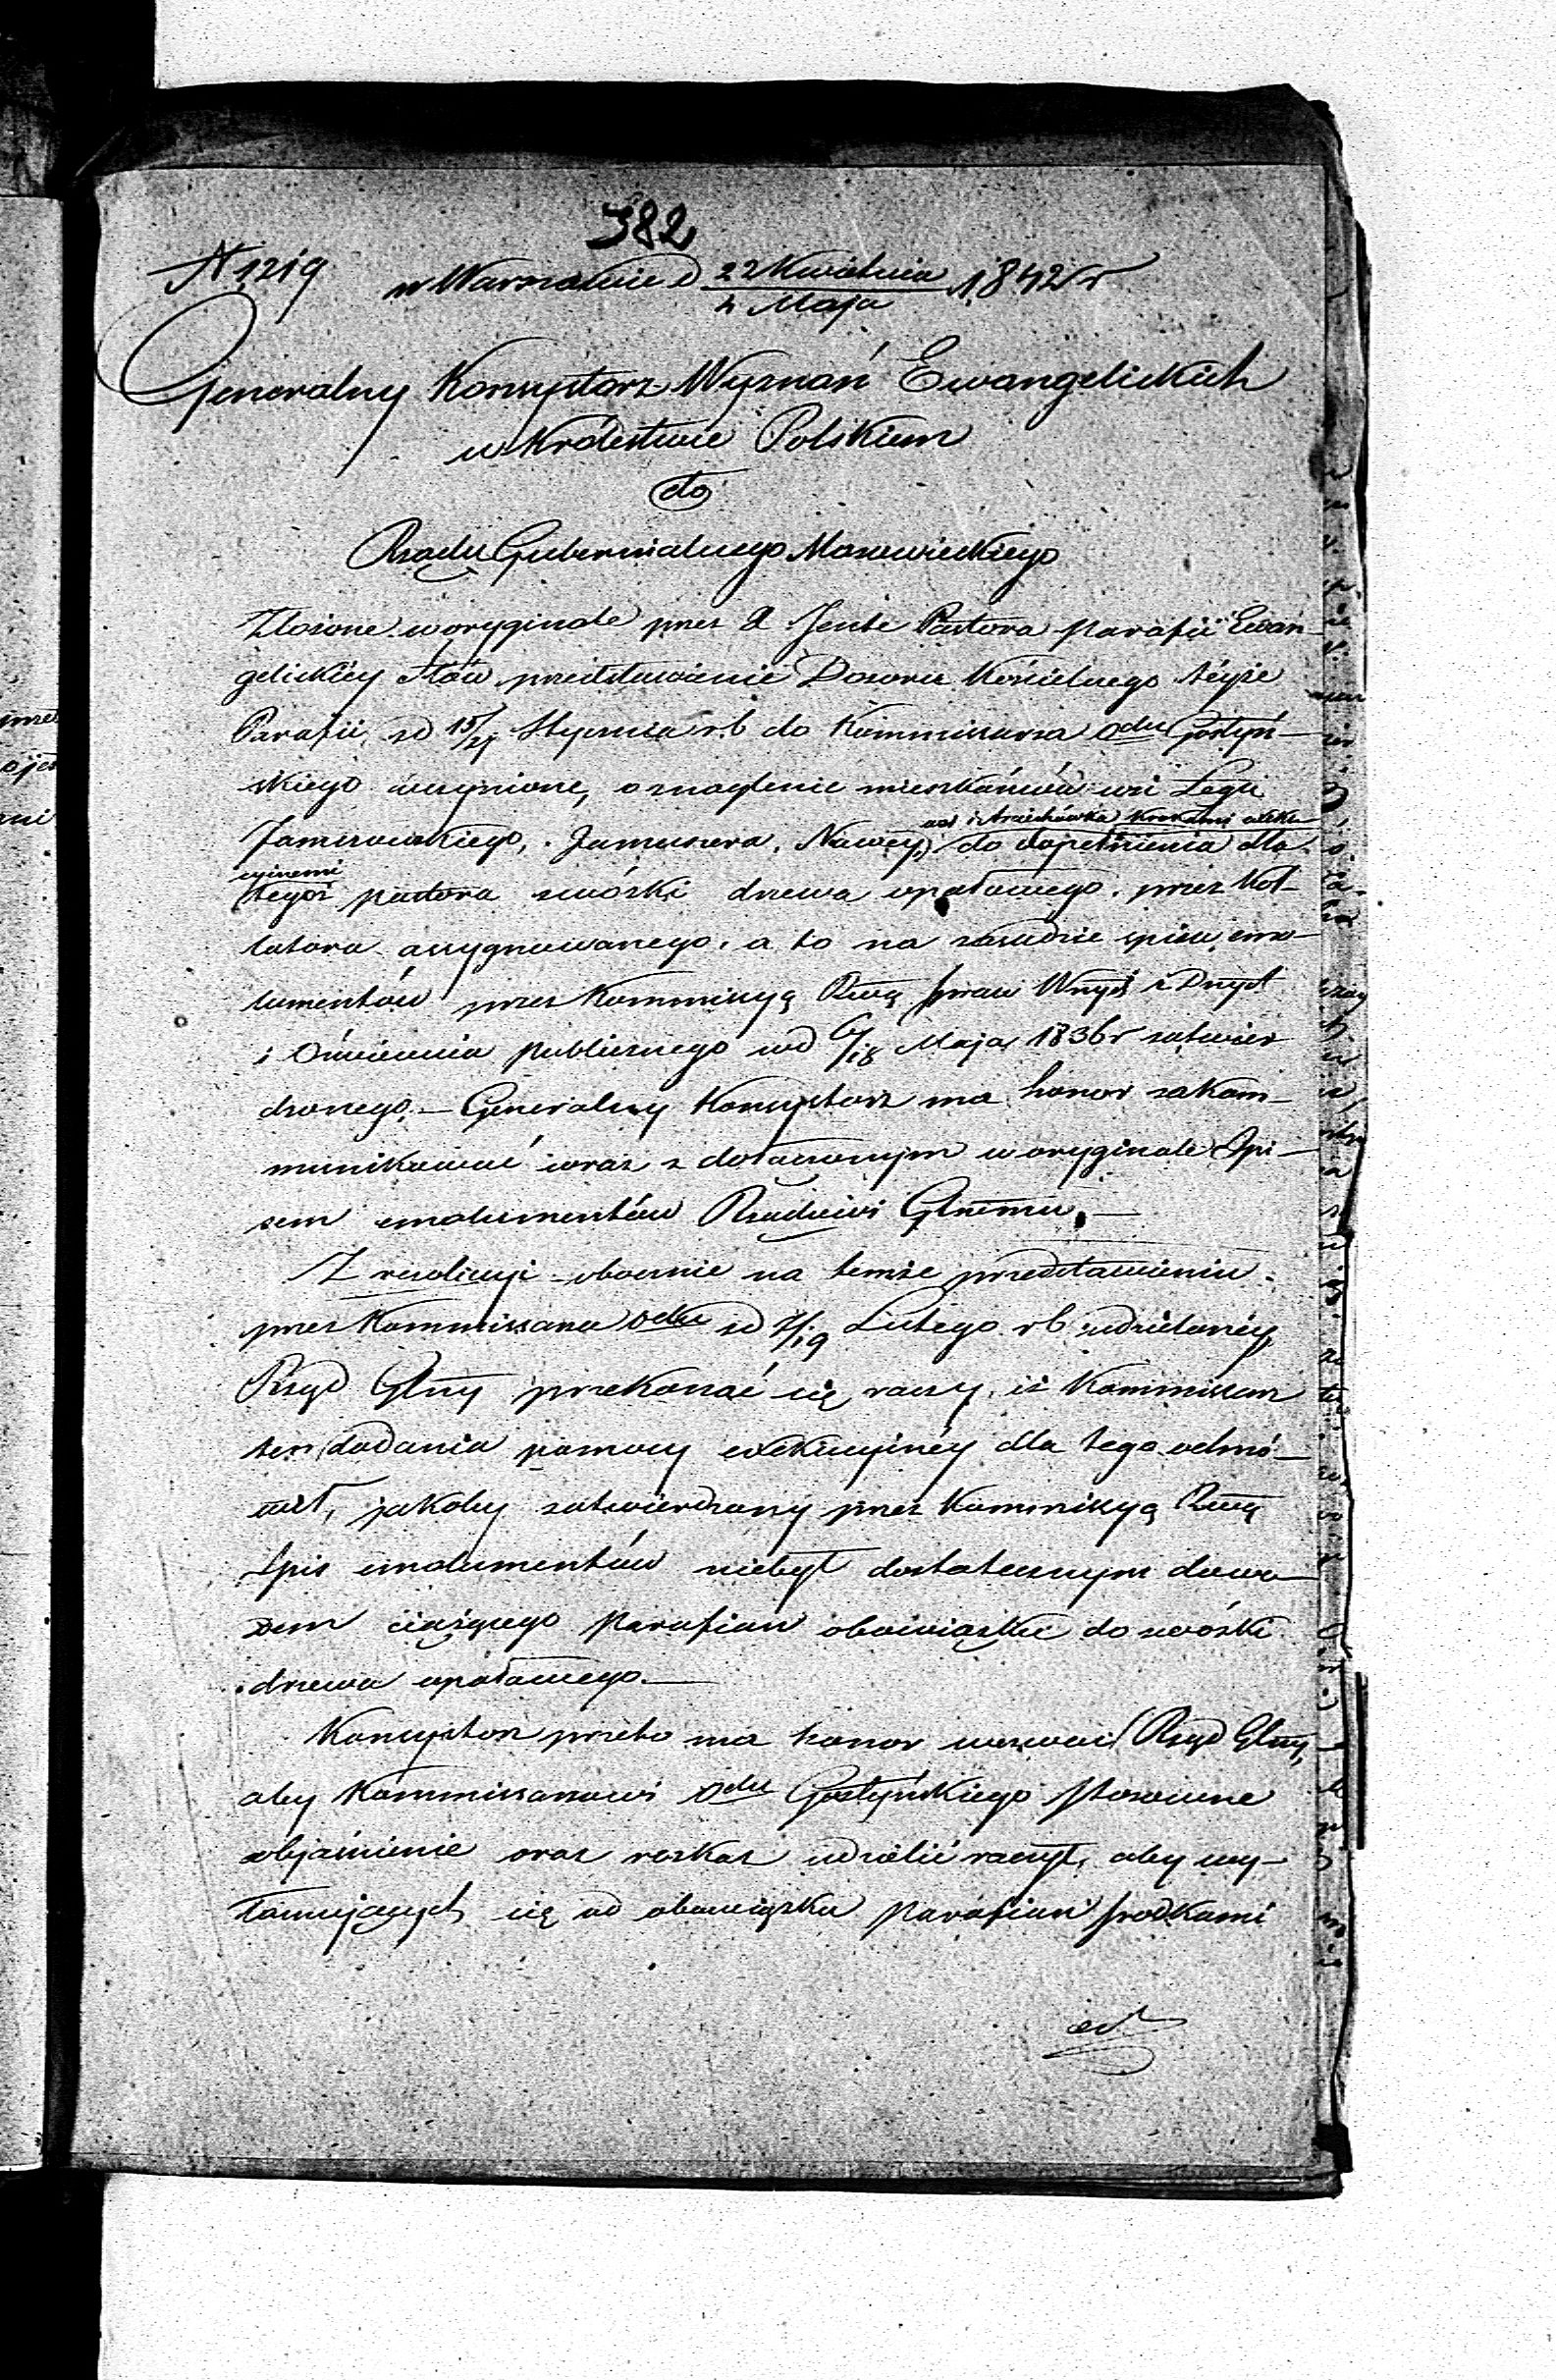 382
N 1219 w Warszawie d 22 Kwietnia / 4 Maja 1842 r
Generalny Konsystorz Wyznań Ewangelickich
w Królestwie Polskiem
do
Rządu Gubernialnego Mazowieckiego
Złożone w oryginale przez X Jente Pastora Parafii Ewan-
gelickiéy Iłów przedstawienie Dozoru Kościelnego téyże
Parafii, z d 15/27 Stycznia r.b do Kommissarza Odu Gostyń-
skiego uczynione, o znaglenie mieszkańców wsi Łęgu
wsi i Arciechówka krokami exeku-
Jamuszewa, Nawey, do dopełnienia dla
cyinemi
tegoż pastora zwózki drzewa opałowego, przez Kol-
latora assygnowanego, a to na zasadzie spisu emo-
lumentów przez Kommissyą Rwą Spraw Wnych i Dnych
i Oświecenia publicznego wd 6/18 Maja 1836 r zatwier
dzonego, — Generalny Konsystorz ma honor zakom-
munikować wraz z dołączonym w oryginale Spi-
sem emolumentów Rządowi Glnemu, —
Z rezolucyi obecnie na temże przedstawieniu
przez Kommissarza Odu z d 7/19 Lutego r b udzielonéy,
Rząd Glny przekonać się raczy, iż Kommissarz
ten dodania pomocy exekucyinéy dla tego odmó-
wił, jakoby zatwierdzony przez Kommissyą Rwą
Spis emolumentów niebył dostatecznym dowo-
dem ciążącego Parafian obowiązku do zwózki
drzewa opałowego. —
Konsystorz przeto ma honor wezwać Rząd Glny,
aby Kommissarzowi Odu Gostyńskiego stosowne
objaśnienie oraz rozkaz udzielić raczył, aby wy-
łamujących się od obowiązku Parafian środkami